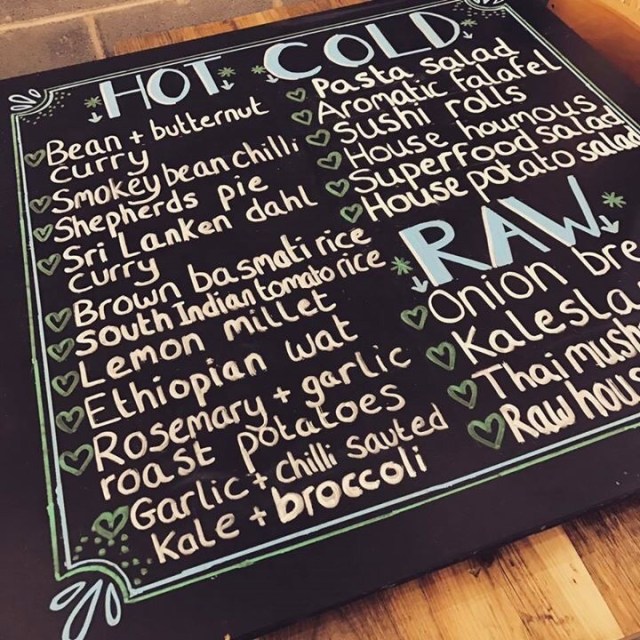 HOT
Bean + butternut
curry
Smokey bean chilli
Shepherds pie
Sri Lanken dahl
curry
Brown basmati rice
South Indian tomato rice
Lemon millet
Ethiopian wat
Rosemary + garlic
roast potatoes
Garlic + Chilli sauted
Kale + broccoli
COLD
Pasta salad
Aromatic falafel
Sushi rolls
House houmous
Superfood Salad
House potato salad
RAW
Onion bre
Kalesla
Thai mush
Raw hou